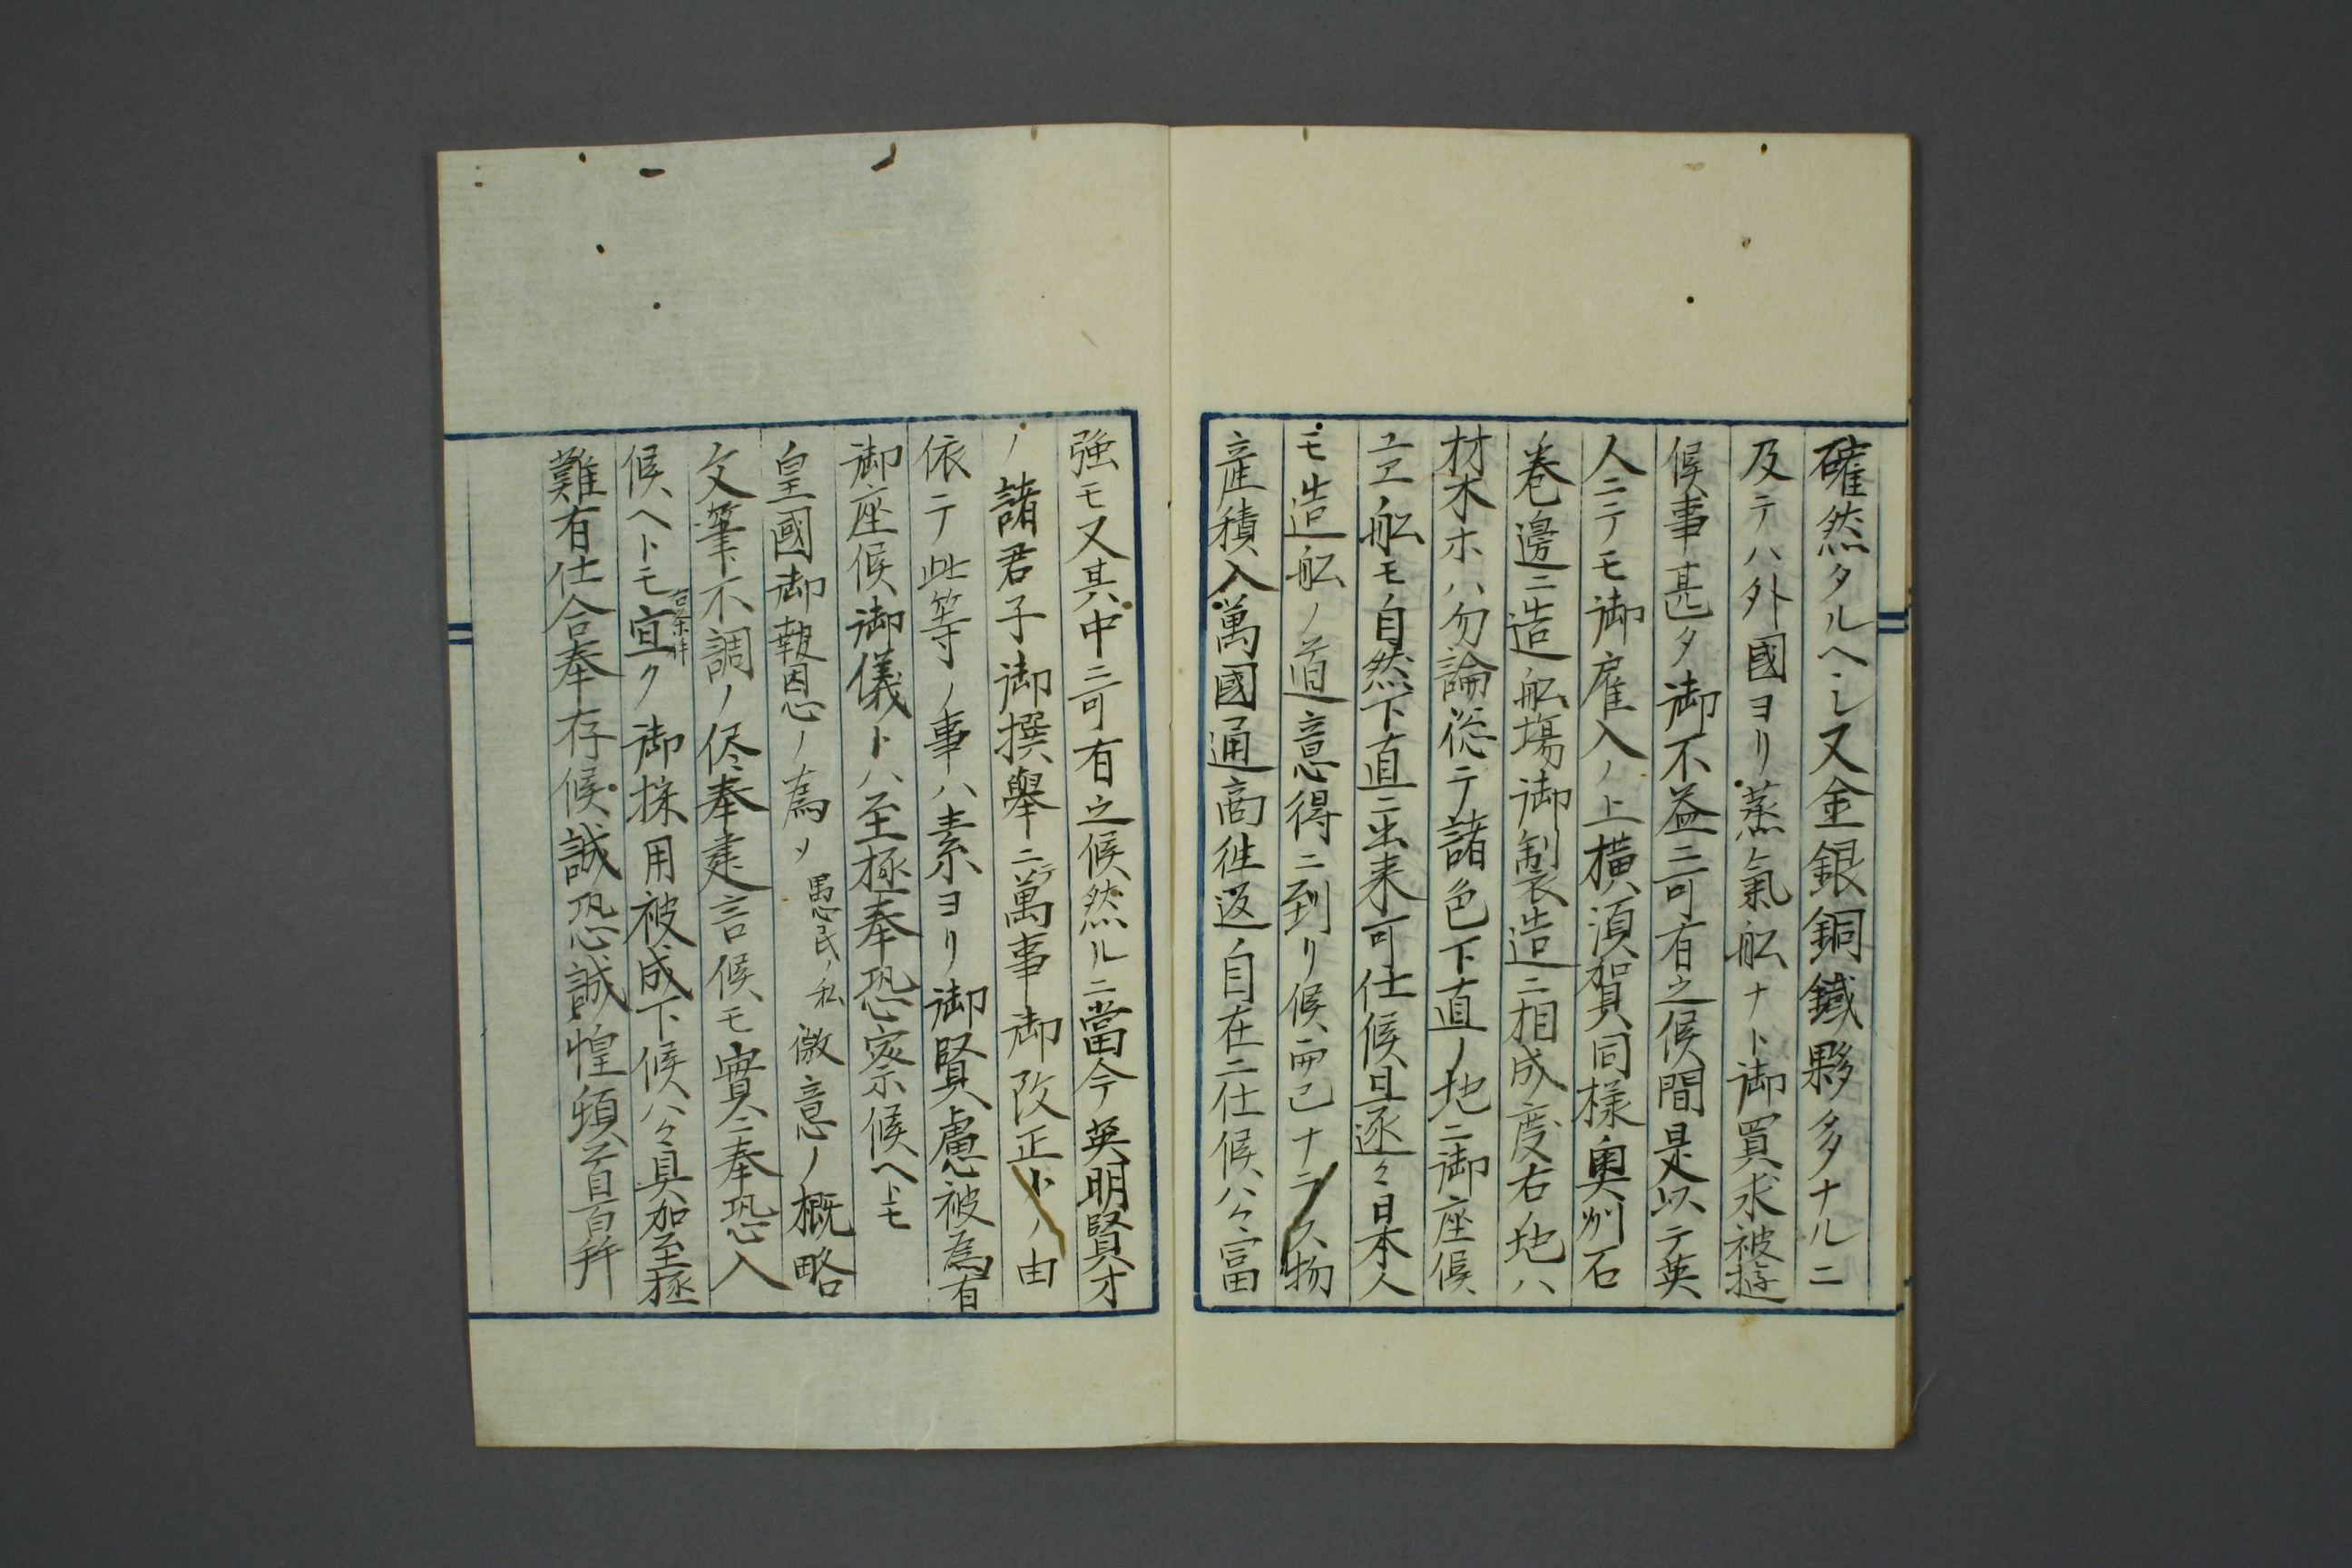 確然タルヘシ又金銀銅鐵夥多ナルニ
及テハ外國ヨリ蒸氣舩ナト御買求被遊
候事甚タ御不益ニ可有之候間是以テ英
人ニテモ御雇入ノ上橫須賀同樣奥州石
巻邊ニ造舩塲御製造ニ相成度右ノ地ハ
材木ホハ勿論從テ諸色下直ノ地ニ御座候
ユヱ舩モ自然下直ニ出来可仕候且逐々日本人
モ造舩ノ道意得ニ到リ候而已ナラス物
産積入萬國通商徃返自在ニ仕候ハヽ富
強モ又其中ニ可有之候然ルニ當今英明賢才
ノ諸君子御撰舉ニテ萬事御改正トノ由
依テ此等ノ事ハ素ヨリ御賢慮被為有
御座候御儀トハ至極奉恐察候ヘトモ
皇國御報恩ノ為ノ愚民ノ私微意ノ概略
文筆不調ノ侭奉建言候モ實ニ奉恐入
候ヘトモ右等件宜ク御採用被成下候ハヽ冥加至極
難有仕合奉存候誠恐誠惶頓首百拜